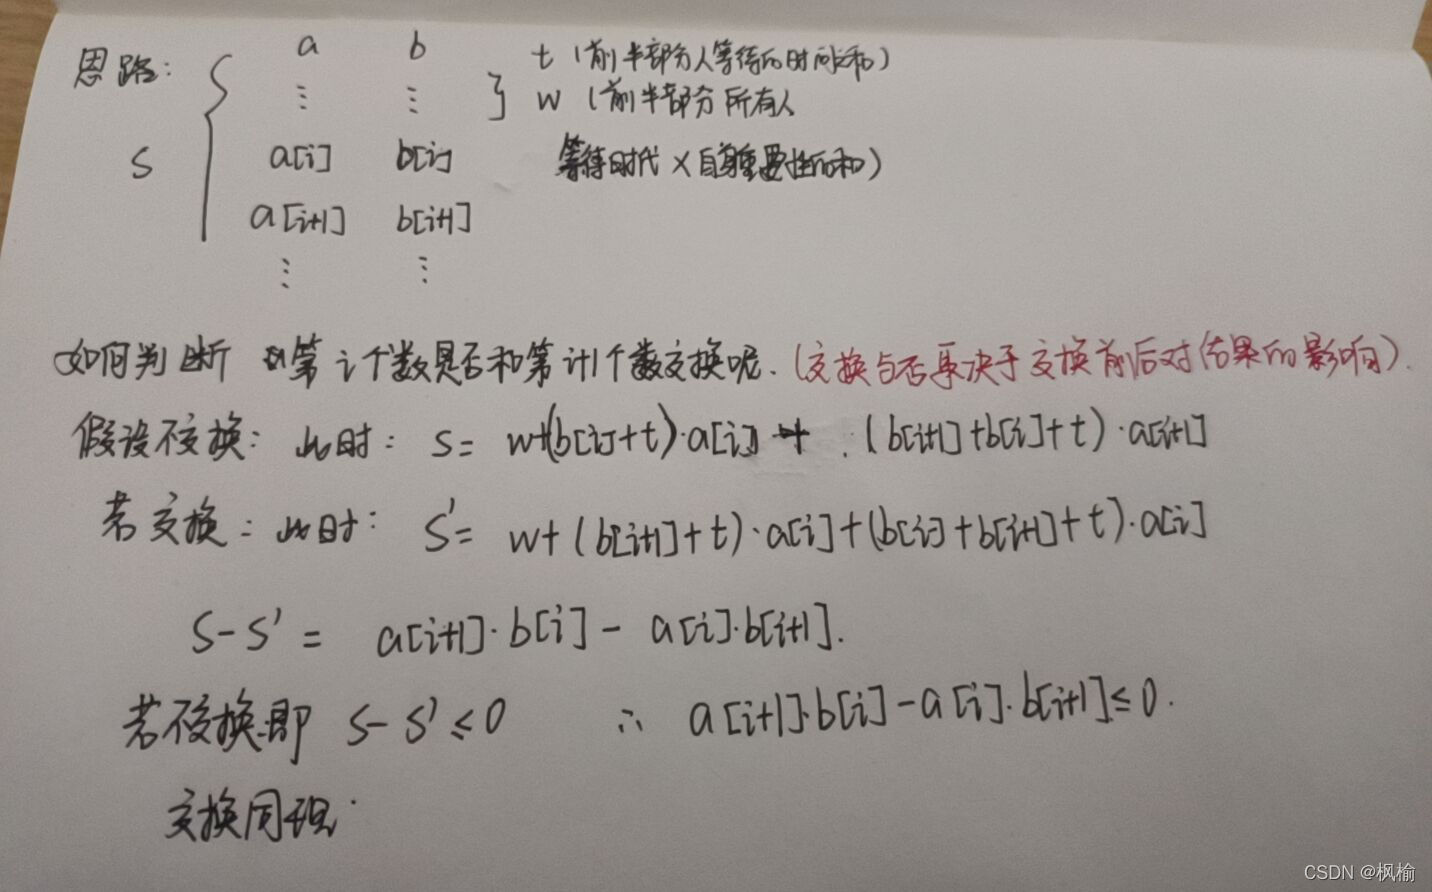 思路: a b t (前半部分人等待的时间之和)
⋮ ⋮ w (前半部分所有人
S a[i] b[i] 等待时代 × 自身重要性的和)
a[i+1] b[i+1]
⋮ ⋮
如何判断 第 i 个数是否和第 i+1 个数交换呢. (交换与否取决于交换前后对结果的影响).
假设不交换: 此时: S = w+(b[i]+t)·a[i] + (b[i+1]+b[i]+t)·a[i+1]
若交换: 此时: S'= w+(b[i+1]+t)·a[i]+(b[i]+b[i+1]+t)·a[i]
S-S' = a[i+1]·b[i] - a[i]·b[i+1].
若不交换.即 S-S' ≤ 0 ∴ a[i+1]·b[i]-a[i]·b[i+1]≤0.
交换同理.
CSDN @枫榆